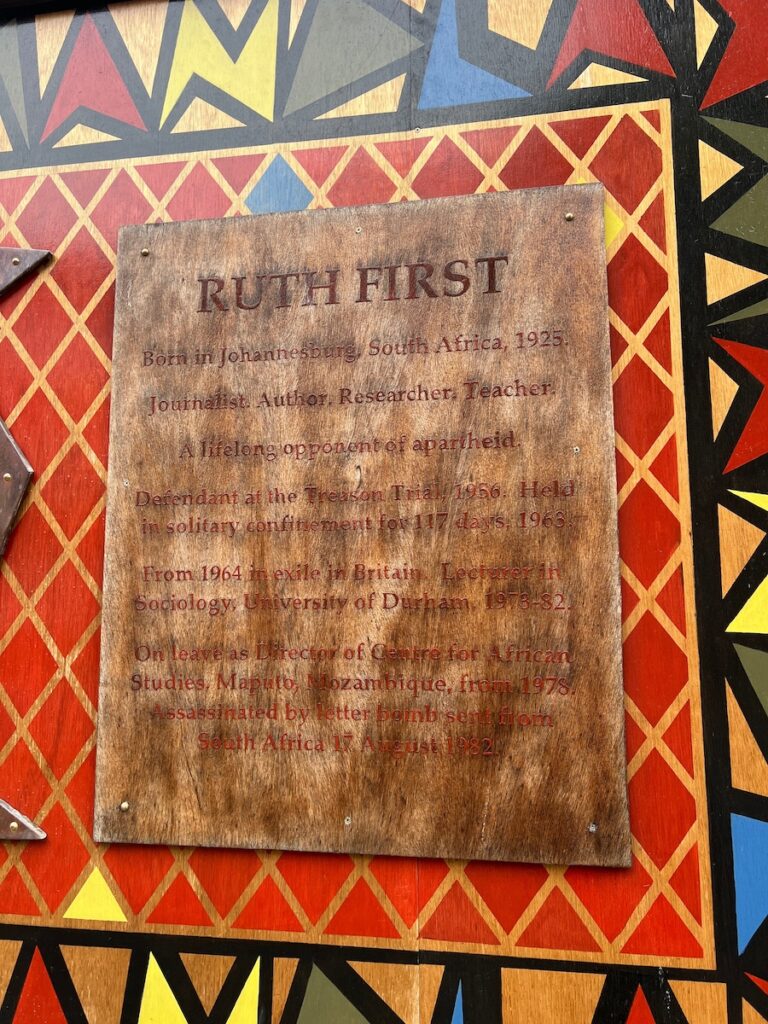 RUTH FIRST
Born in Johannesburg, South Africa, 1925.
Journalist. Author. Researcher. Teacher.
A lifelong opponent of apartheid.
Defendant at the Treason Trial, 1956. Held
in solitary confinement for 117 days, 1963.
From 1964 in exile in Britain. Lecturer in
Sociology, University of Durham, 1973-82.
On leave as Director of Centre for African
Studies, Maputo, Mozambique, from 1978.
Assassinated by letter bomb sent from
South Africa 17 August 1982.